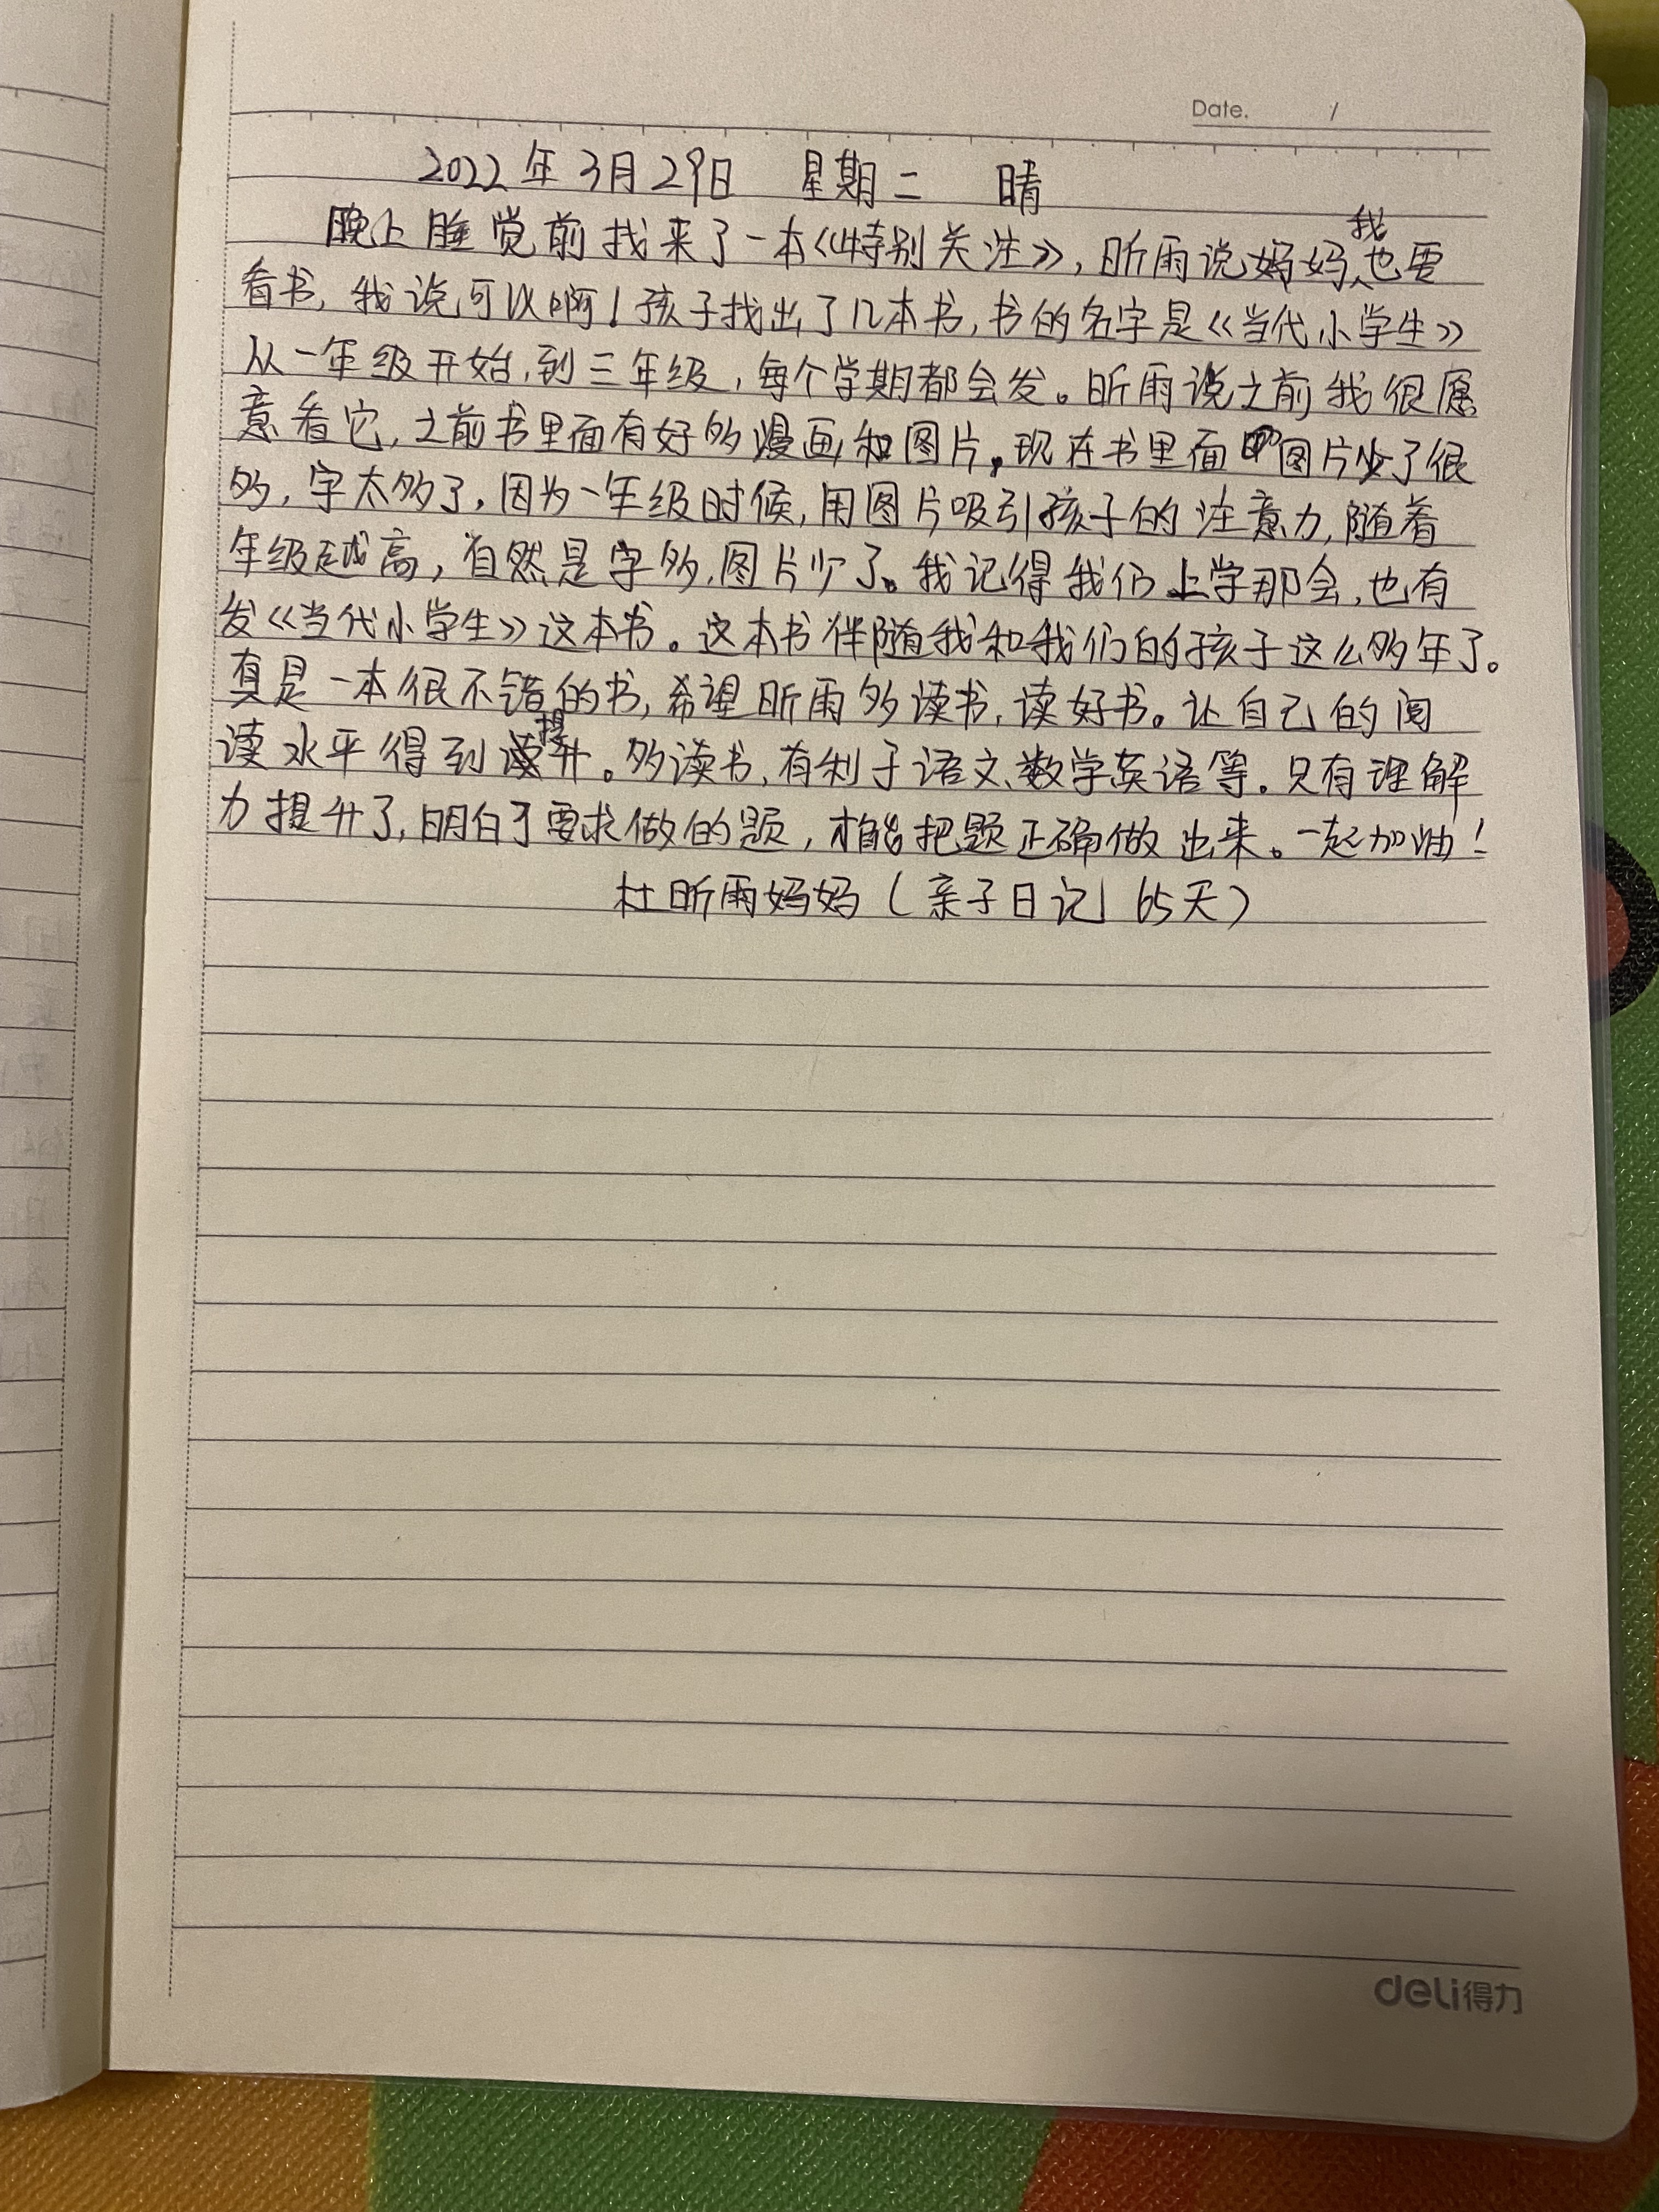 Date. /
2022年3月29日 星期二 晴
晚上睡觉前找来了一本《特别关注》，昕雨说妈妈我也要
看书，我说可以啊！孩子找出了几本书，书的名字是《当代小学生》
从一年级开始，到三年级，每个学期都会发。昕雨说之前我很愿
意看它，之前书里面有好多漫画和图片。现在书里面图片少了很
多，字太多了，因为一年级时候，用图片吸引孩子的注意力，随着
年级越高，自然是字多，图片少了。我记得我们上学那会，也有
发《当代小学生》这本书。这本书伴随我和我们的孩子这么多年了。
真是一本很不错的书，希望昕雨多读书，读好书。让自己的阅
读水平得到提升。多读书，有利于语文、数学英语等。只有理解
力提升了，明白了要求做的题，才能把题正确做出来。一起加油！
杜昕雨妈妈（亲子日记 65天）
deli得力